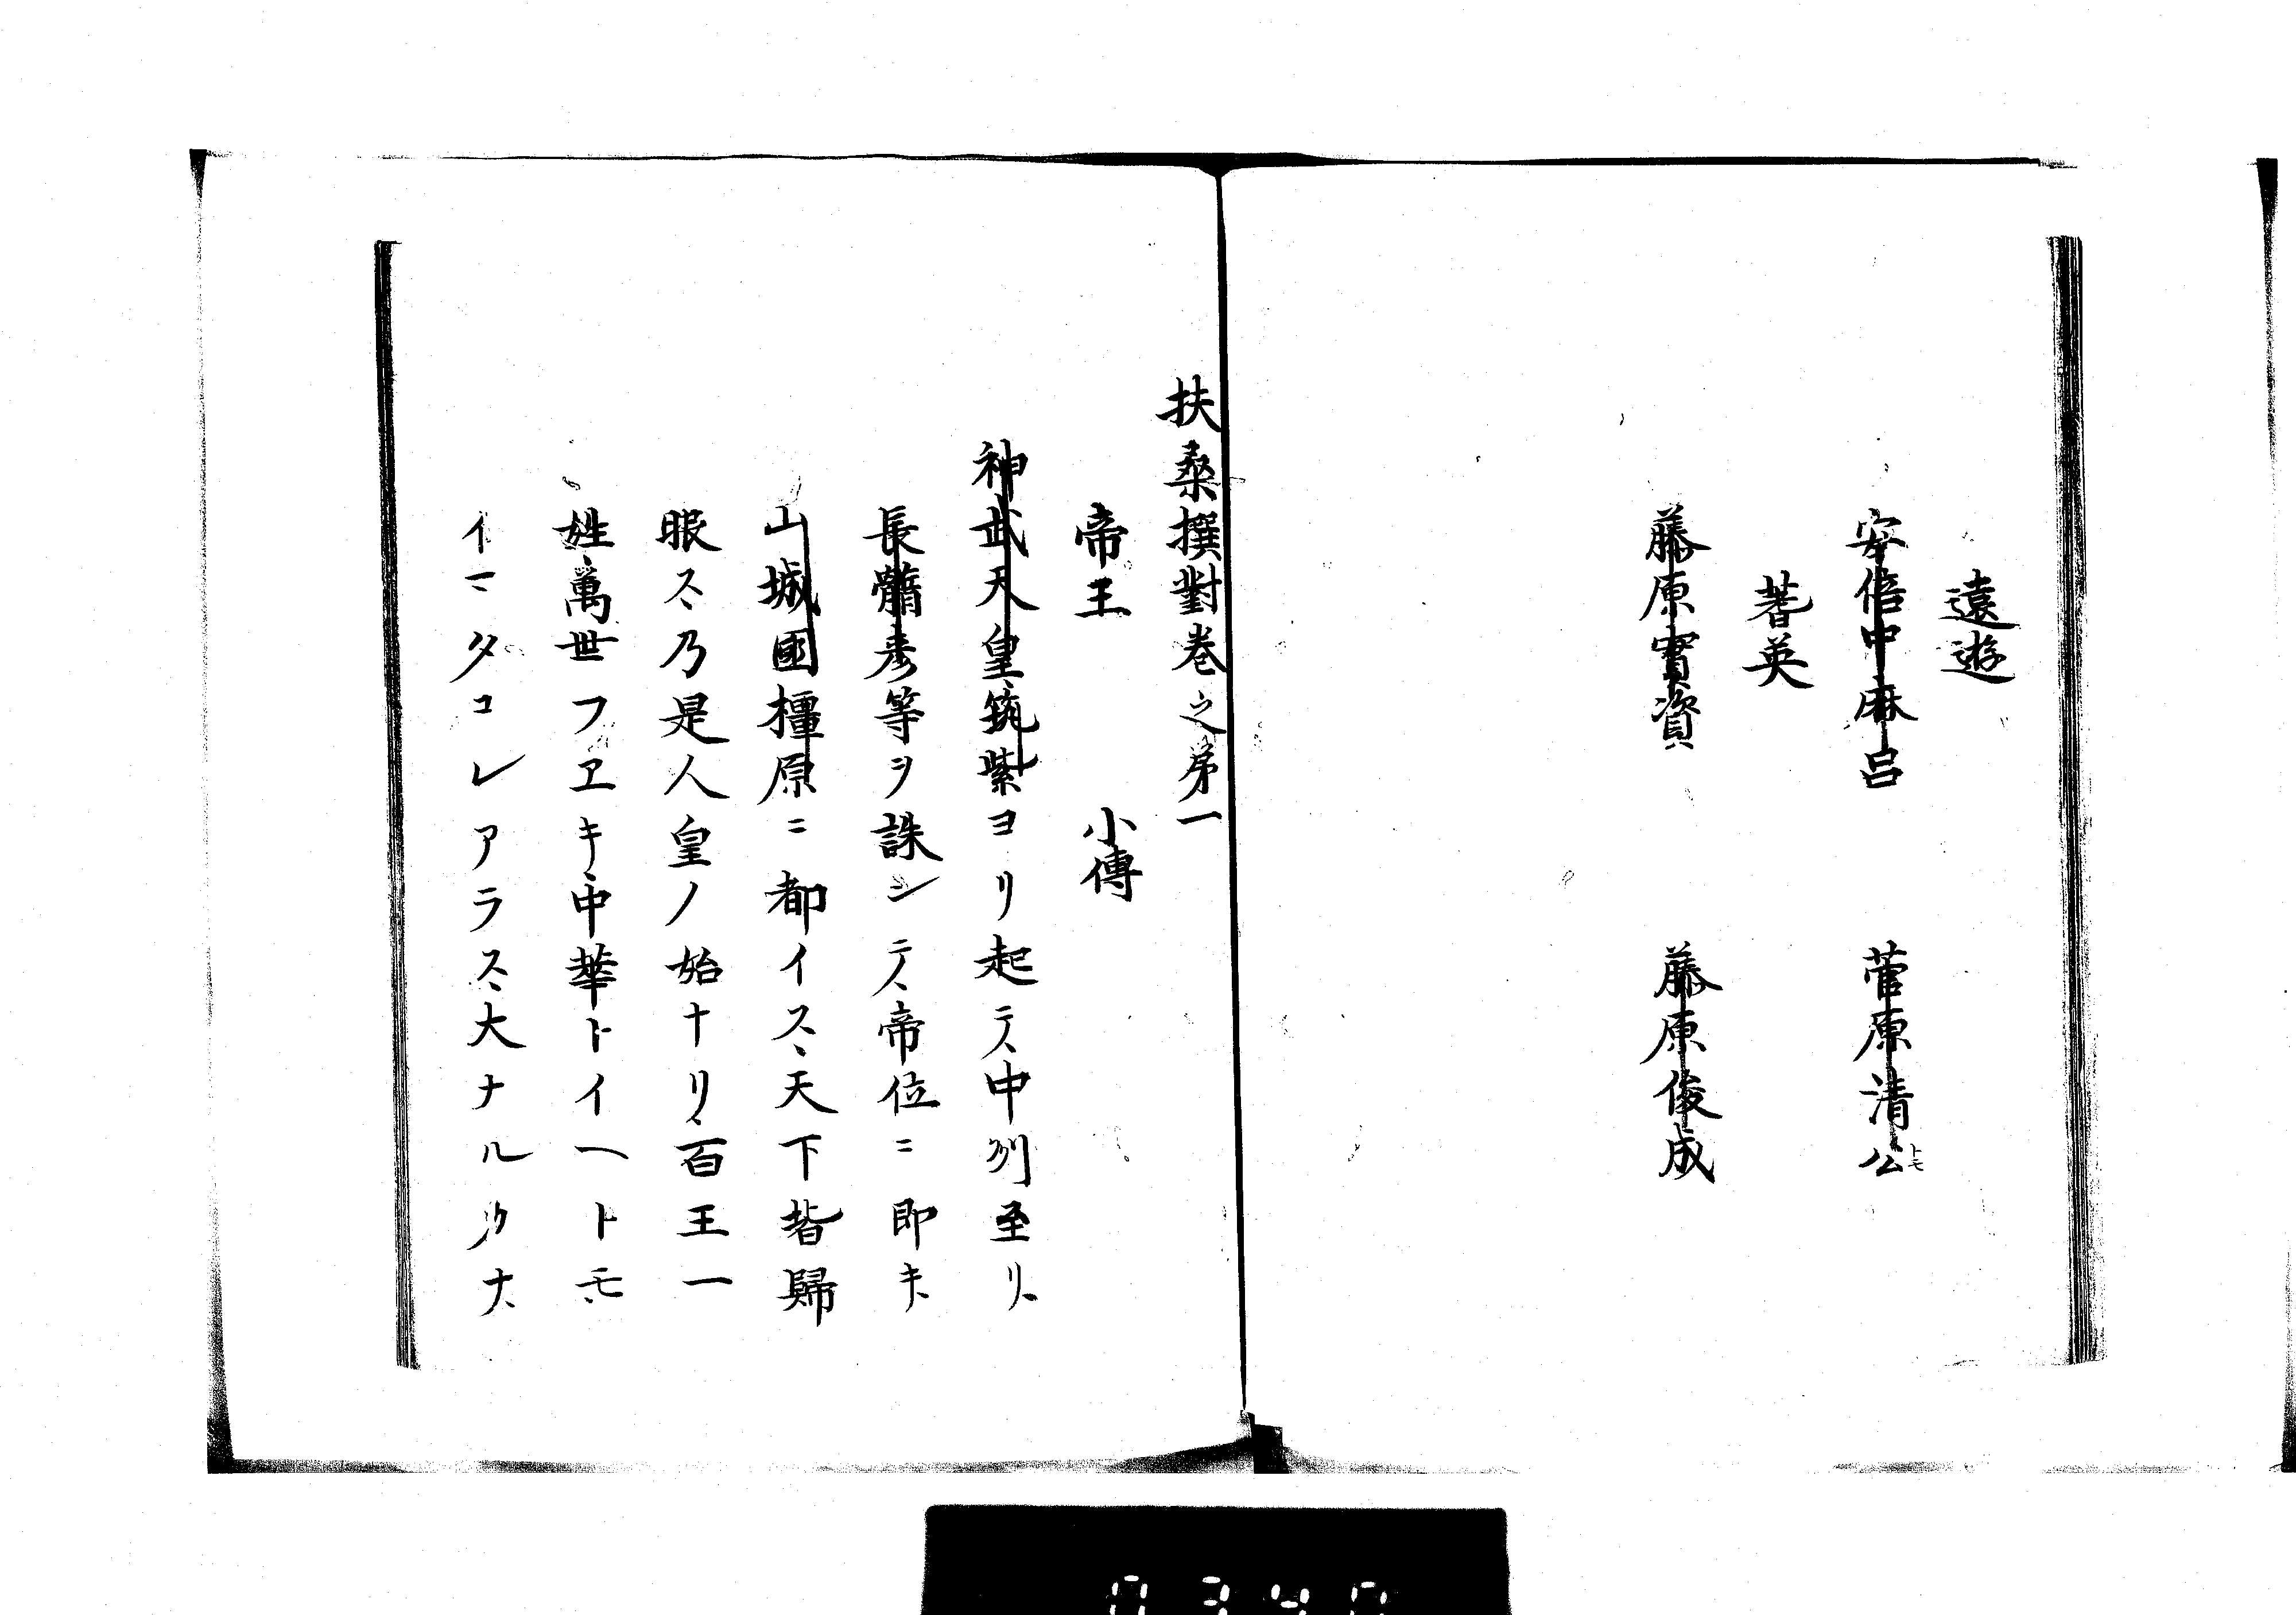 遠遊
安倍中麻呂　菅原清公トモ
耆英
藤原實資　藤原俊成
扶桑撰對卷之第一
帝王　小傳
神武天皇筑紫ヨリ起テ中州至リ
長髓彦等ヲ誅シテ帝位ニ即キ
山城國橿原ニ都イス天下皆歸
服ス乃是人皇ノ始ナリ百王一
姓萬世フヱキ中華トイヘトモ
イマタコレアラス大ナルカナ
0340